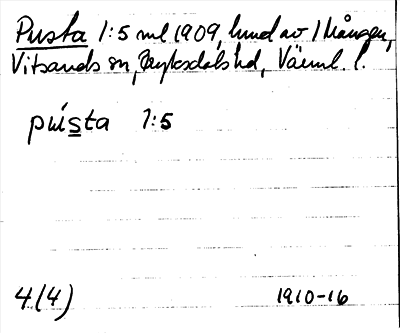 Pusta 1:5 ml 1909, hmd av 1 Mången,
Vitsands sn, Fryksdals hd, Värml. l.
púista 1:5
4(4) 1910-16